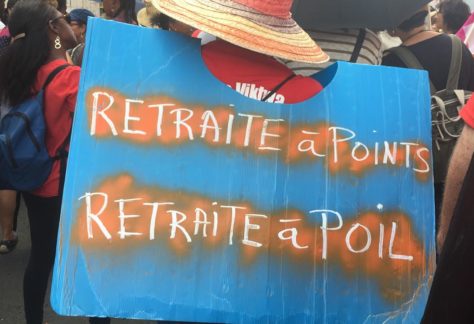 RETRAITE ā POINTS
RETRAITE ā POIL